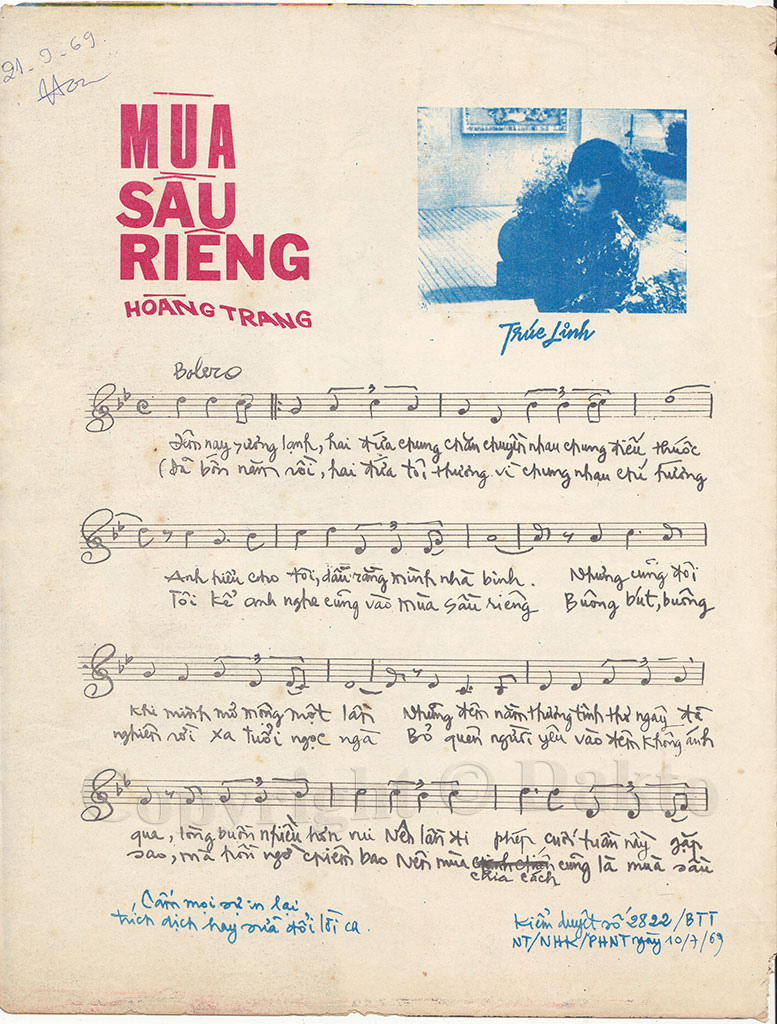 21-9-69
MÙA
SẦU
RIÊNG
HOÀNG TRANG
Trúc Linh
Bolero
Đêm nay sương lạnh, hai đứa chung chăn chuyền nhau chung điếu thuốc
(Đã bốn năm rồi, hai đứa tôi thương vì chung nhau chí hướng
Anh hiểu cho tôi, dẫu rằng mình nhà binh. Nhưng cũng đôi
Tôi kể anh nghe cũng vào mùa sầu riêng Buông bút, buông
khi mình mơ mộng một lần Những đêm nằm thương tình thư ngày đã
nghiên rời xa tuổi ngọc ngà Bỏ quên người yêu vào đêm không ánh
qua, lòng buồn nhiều hơn vui Nên lần đi phép cuối tuần này gặp
sao, mà hồn ngỡ chiêm bao Nên mùa chia cách cũng là mùa sầu
Copyright © Dakto
Cấm mọi sự in lại
trích dịch hay sửa đổi lời ca
Kiểm duyệt số 2822/BTT
NT/NHK/PHNT ngày 10/7/69